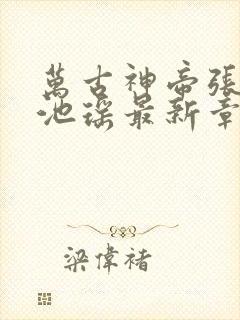 萬古神帝張
池瑤最新章
梁偉褚